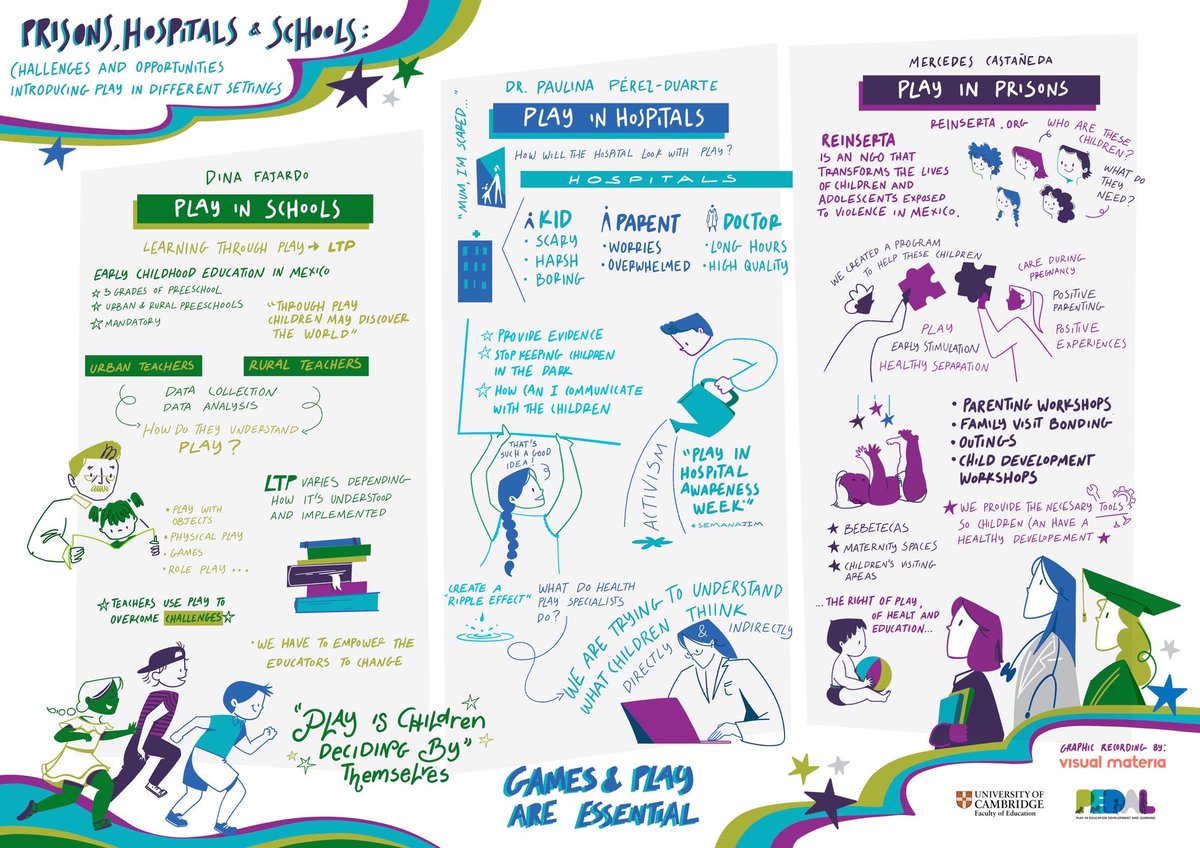 PRISONS, HOSPITALS & SCHOOLS:
CHALLENGES AND OPPORTUNITIES
INTRODUCING PLAY IN DIFFERENT SETTINGS
DINA FAJARDO
PLAY IN SCHOOLS
LEARNING THROUGH PLAY → LTP
EARLY CHILDHOOD EDUCATION IN MEXICO
☆ 3 GRADES OF PRESCHOOL
☆ URBAN & RURAL PRESCHOOLS
☆ MANDATORY
"THROUGH PLAY
CHILDREN MAY DISCOVER
THE WORLD"
URBAN TEACHERS
RURAL TEACHERS
DATA COLLECTION
DATA ANALYSIS
HOW DO THEY UNDERSTAND
PLAY?
LTP VARIES DEPENDING
HOW IT'S UNDERSTOOD
AND IMPLEMENTED
• PLAY WITH
OBJECTS
• PHYSICAL PLAY
• GAMES
• ROLE PLAY ...
☆ TEACHERS USE PLAY TO
OVERCOME CHALLENGES ☆
• WE HAVE TO EMPOWER THE
EDUCATORS TO CHANGE
"PLAY IS CHILDREN
DECIDING BY"
THEMSELVES
DR. PAULINA PÉREZ-DUARTE
PLAY IN HOSPITALS
"MUM, I'M SCARED..."
HOW WILL THE HOSPITAL LOOK WITH PLAY?
HOSPITALS
KID
• SCARY
• HARSH
• BORING
PARENT
• WORRIES
• OVERWHELMED
DOCTOR
• LONG HOURS
• HIGH QUALITY
☆ PROVIDE EVIDENCE
☆ STOP KEEPING CHILDREN
IN THE DARK
☆ HOW CAN I COMMUNICATE
WITH THE CHILDREN
THAT'S
SUCH A GOOD
IDEA!
ACTIVISM
"PLAY IN
HOSPITAL
AWARENESS
WEEK"
#SEMANATJM
CREATE A
"RIPPLE EFFECT"
WHAT DO HEALTH
PLAY SPECIALISTS
DO?
WE ARE TRYING TO UNDERSTAND
WHAT CHILDREN THIINK
DIRECTLY
&
INDIRECTLY
GAMES & PLAY
ARE ESSENTIAL
MERCEDES CASTAÑEDA
PLAY IN PRISONS
REINSERTA.ORG
REINSERTA
IS AN NGO THAT
TRANSFORMS THE LIVES
OF CHILDREN AND
ADOLESCENTS EXPOSED
TO VIOLENCE IN MEXICO.
WHO ARE THESE
CHILDREN?
WHAT DO
THEY
NEED?
WE CREATED A PROGRAM
TO HELP THESE CHILDREN
CARE DURING
PREGNANCY
POSITIVE
PARENTING
POSITIVE
EXPERIENCES
PLAY
EARLY STIMULATION
HEALTHY SEPARATION
• PARENTING WORKSHOPS
• FAMILY VISIT BONDING
• OUTINGS
• CHILD DEVELOPMENT
WORKSHOPS
★ WE PROVIDE THE NECESARY TOOLS
SO CHILDREN CAN HAVE A
HEALTHY DEVELOPEMENT ★
★ BEBETECAS
★ MATERNITY SPACES
★ CHILDREN'S VISITING
AREAS
...THE RIGHT OF PLAY,
OF HEALT AND
EDUCATION...
GRAPHIC RECORDING BY:
visual materia
UNIVERSITY OF
CAMBRIDGE
Faculty of Education
PEDAL
PLAY IN EDUCATION DEVELOPMENT AND LEARNING